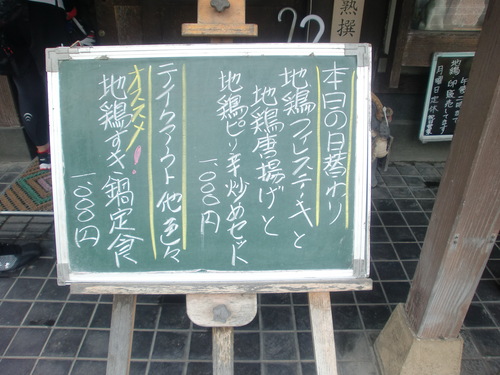 本日の日替わり
地鶏フィレステーキと
地鶏唐揚げと
地鶏ピリ辛炒めセット
1,000円
テイクアウト他色々
オススメ!
地鶏すき鍋定食
1,000円
熟撰
地鶏
月曜日定休